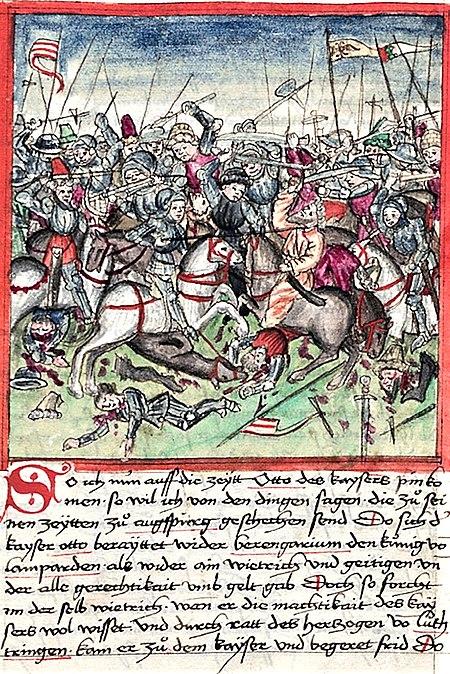 So ich nun auff die zeytt Otto des kaysers pin ko
men · so wil ich von den dingen sagen · die zů sei
nen zeytten zů augspurg geschechen send Do sich d
kayser otto berayttet wider berengarium den kung vo
lamparden als wider ain wietrich und geitigen un
der alle gerechtikait umb gelt gab Doch so forcht
im der selb wietrich · wan er die machtikait des kay
sers wol wisset · und durch ratt des herzogen vo luth
tringen · kam er zů dem kayser und begeret frid Do